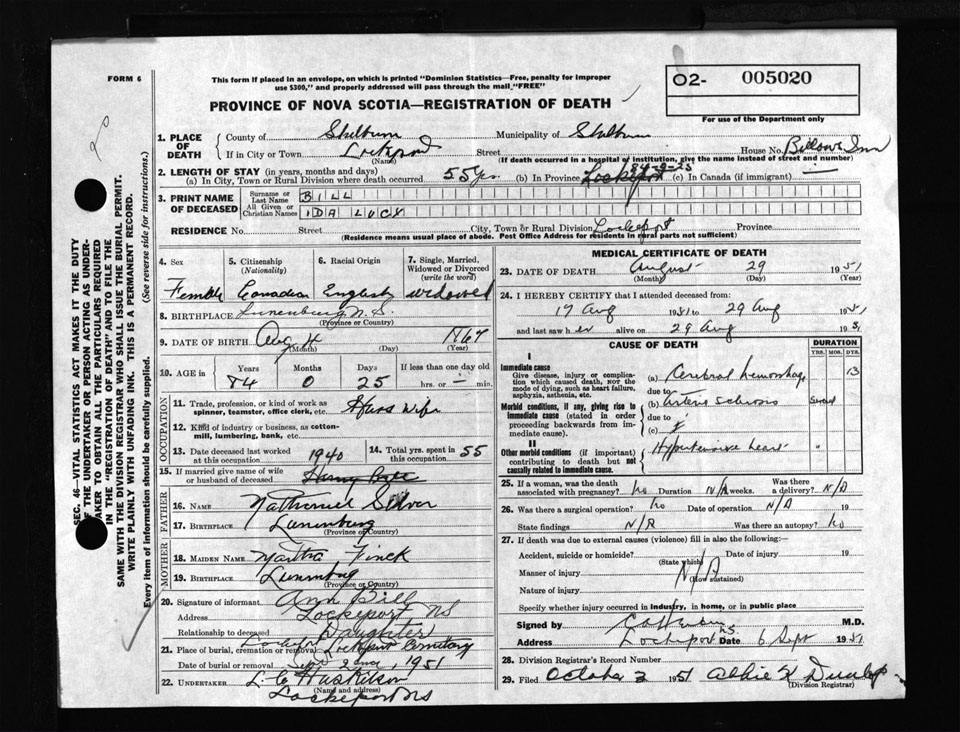 FORM 6
This form if placed in an envelope, on which is printed "Dominion Statistics—Free, penalty for improper
use $300," and properly addressed will pass through the mail "FREE"
PROVINCE OF NOVA SCOTIA—REGISTRATION OF DEATH
O2- 005020
For use of the Department only
1. PLACE OF DEATH
County of Shelburn Municipality of Shelburn
If in City or Town Lockeport Street House No.
(Name) (If death occurred in a hospital or institution, give the name instead of street and number)
2. LENGTH OF STAY (in years, months and days)
(a) In City, Town or Rural Division where death occurred 55 yrs (b) In Province 84-0-25 (c) In Canada (if immigrant)
Lockeport
3. PRINT NAME OF DECEASED
Surname or Last Name BILL
All Given or Christian Names IDA LUCY
RESIDENCE No. Street City, Town or Rural Division Lockeport Province
(Residence means usual place of abode. Post Office Address for residents in rural parts not sufficient)
4. Sex
Female
5. Citizenship (Nationality)
Canadian
6. Racial Origin
English
7. Single, Married, Widowed or Divorced (write the word)
widowed
8. BIRTHPLACE Lunenburg N.S.
(Province or Country)
9. DATE OF BIRTH Aug 4 1867
(Month) (Day) (Year)
10. AGE in Years Months Days If less than one day old
84 0 25 hrs. or — min.
OCCUPATION
11. Trade, profession or kind of work as
spinner, teamster, office clerk, etc. House wife
12. Kind of industry or business, as cotton-
mill, lumbering, bank, etc.
13. Date deceased last worked
at this occupation 1940
14. Total yrs. spent in
this occupation 55
15. If married give name of wife
or husband of deceased
FATHER
16. Name Nathaniel
17. Birthplace Lunenburg
(Province or Country)
MOTHER
18. Maiden Name Martha Finck
19. Birthplace Lunenburg
(Province or Country)
20. Signature of informant Ann Bill
Address Lockeport NS
Relationship to deceased Daughter
21. Place of burial, cremation or removal Lockeport Cemetary
Date of burial or removal Sept 2 1951
22. UNDERTAKER L. C. Huskilson
(Name and address)
Lockeport NS
MEDICAL CERTIFICATE OF DEATH
23. DATE OF DEATH August 29 1951
(Month) (Day)
24. I HEREBY CERTIFY that I attended deceased from:
17 Aug 1951 to 29 Aug 1951
and last saw h er alive on 29 Aug 1951
CAUSE OF DEATH
DURATION
YRS. MOS. DYS.
I
Immediate cause
Give disease, injury or complica-
tion which caused death, NOT the
mode of dying, such as heart failure,
asphyxia, asthenia, etc.
(a) Cerebral hemorrhage 13
due to
Morbid conditions, if any, giving rise to
immediate cause (stated in order
proceeding backwards from im-
mediate cause).
(b)
due to
(c)
II
Other morbid conditions (if important)
contributing to death but not
causally related to immediate cause.
Hypertensive heart
25. If a woman, was the death
associated with pregnancy? No Duration N/A weeks. Was there
a delivery? N/A
26. Was there a surgical operation? No Date of operation N/A 19
State findings N/A Was there an autopsy? No
27. If death was due to external causes (violence) fill in also the following:—
Accident, suicide or homicide? Date of injury 19
(State which)
Manner of injury N/A
(How sustained)
Nature of injury
Specify whether injury occurred in industry, in home, or in public place
Signed by M.D.
Address Lockeport N.S. Date 6 Sept 1951
28. Division Registrar's Record Number
29. Filed October 3 1951
(Division Registrar)
SEC. 46—VITAL STATISTICS ACT MAKES IT THE DUTY
OF THE UNDERTAKER OR PERSON ACTING AS UNDER-
TAKER TO OBTAIN ALL THE PARTICULARS REQUIRED
IN THE "REGISTRATION OF DEATH" AND TO FILE THE
SAME WITH THE DIVISION REGISTRAR WHO SHALL ISSUE THE BURIAL PERMIT.
WRITE PLAINLY WITH UNFADING INK. THIS IS A PERMANENT RECORD.
Every item of information should be carefully supplied. (See reverse side for instructions.)